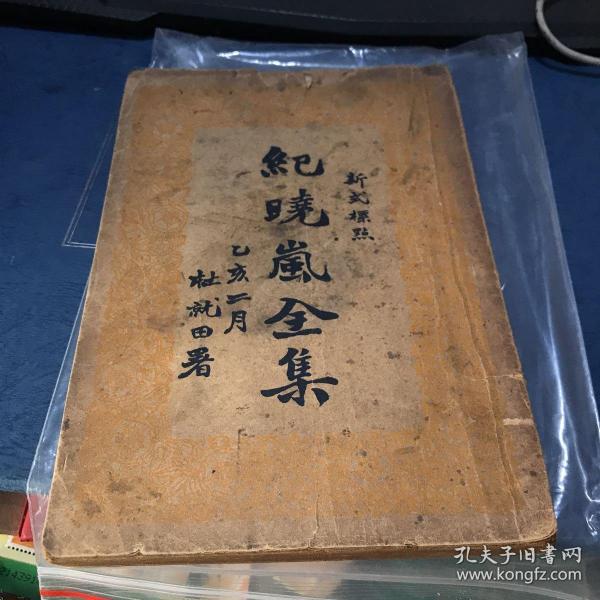 新式標點
紀曉嵐全集
乙亥二月
杜就田署
孔夫子旧书网
www.kongfz.com